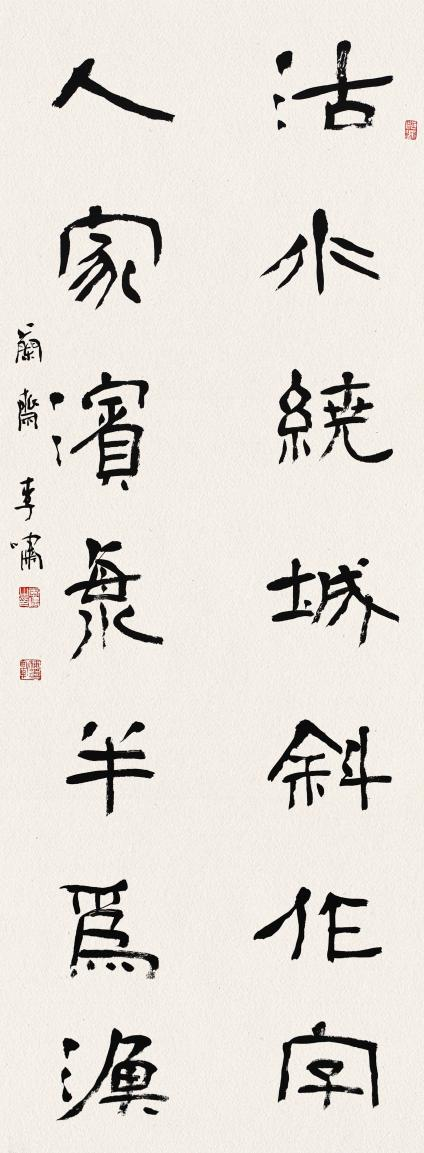 沽水繞城斜作字
人家濱海半爲漁
蘭齋李嘯